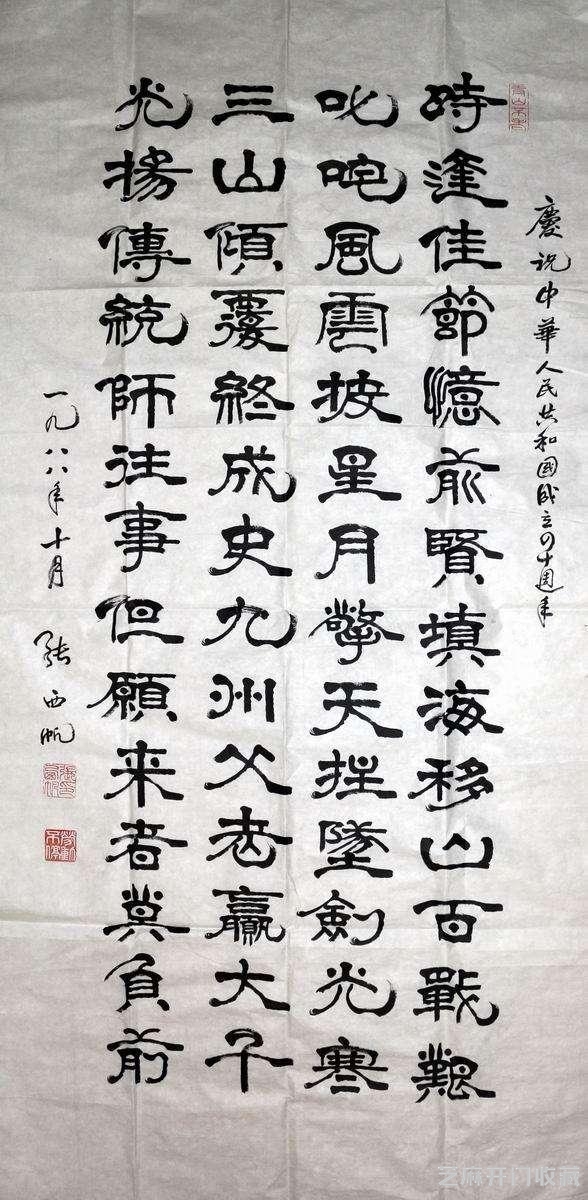 慶祝中華人民共和國成立四十週年
時逢佳節憶前賢填海移山百戰艱
叱咆風雲披星月擎天拄墜劍光寒
三山傾覆終成史九州父老贏大千
光揚傳統師往事但願来者莫負前
一九八八年十月 張西帆
芝麻开门收藏